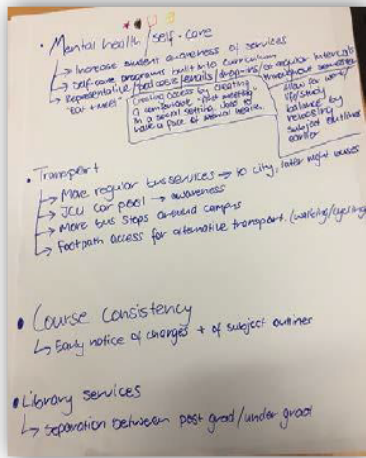 • Mental health / self-care
↳ Increase student awareness of services
↳ Self-care programs built into curriculum
↳ Representative / pod casts / emails / drop-ins / at regular intervals throughout semester
"eat + meet"
Creating access by creating
a comfortable "first meeting"
in a social setting. Also to
have a face of mental health.
Allow for work/
life/study
balance by
releasing
subject outlines
earlier
• Transport
↳ More regular bus services → to city, later night buses
↳ JCU car pool → awareness
↳ More bus stops around campus
↳ Footpath access for alternative transport. (walking/cycling)
• Course Consistency
↳ Early notice of changes + of subject outlines
• Library services
↳ Separation between post grad/under grad